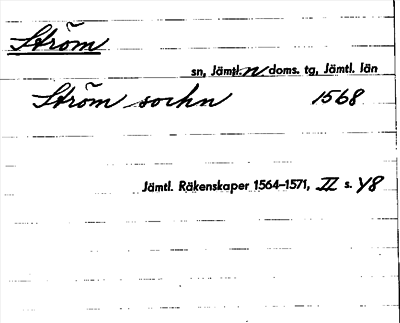 Ström
sn, Jämtl. n doms. tg, Jämtl. län
Ström sochn 1568
Jämtl. Räkenskaper 1564–1571, II s. 48